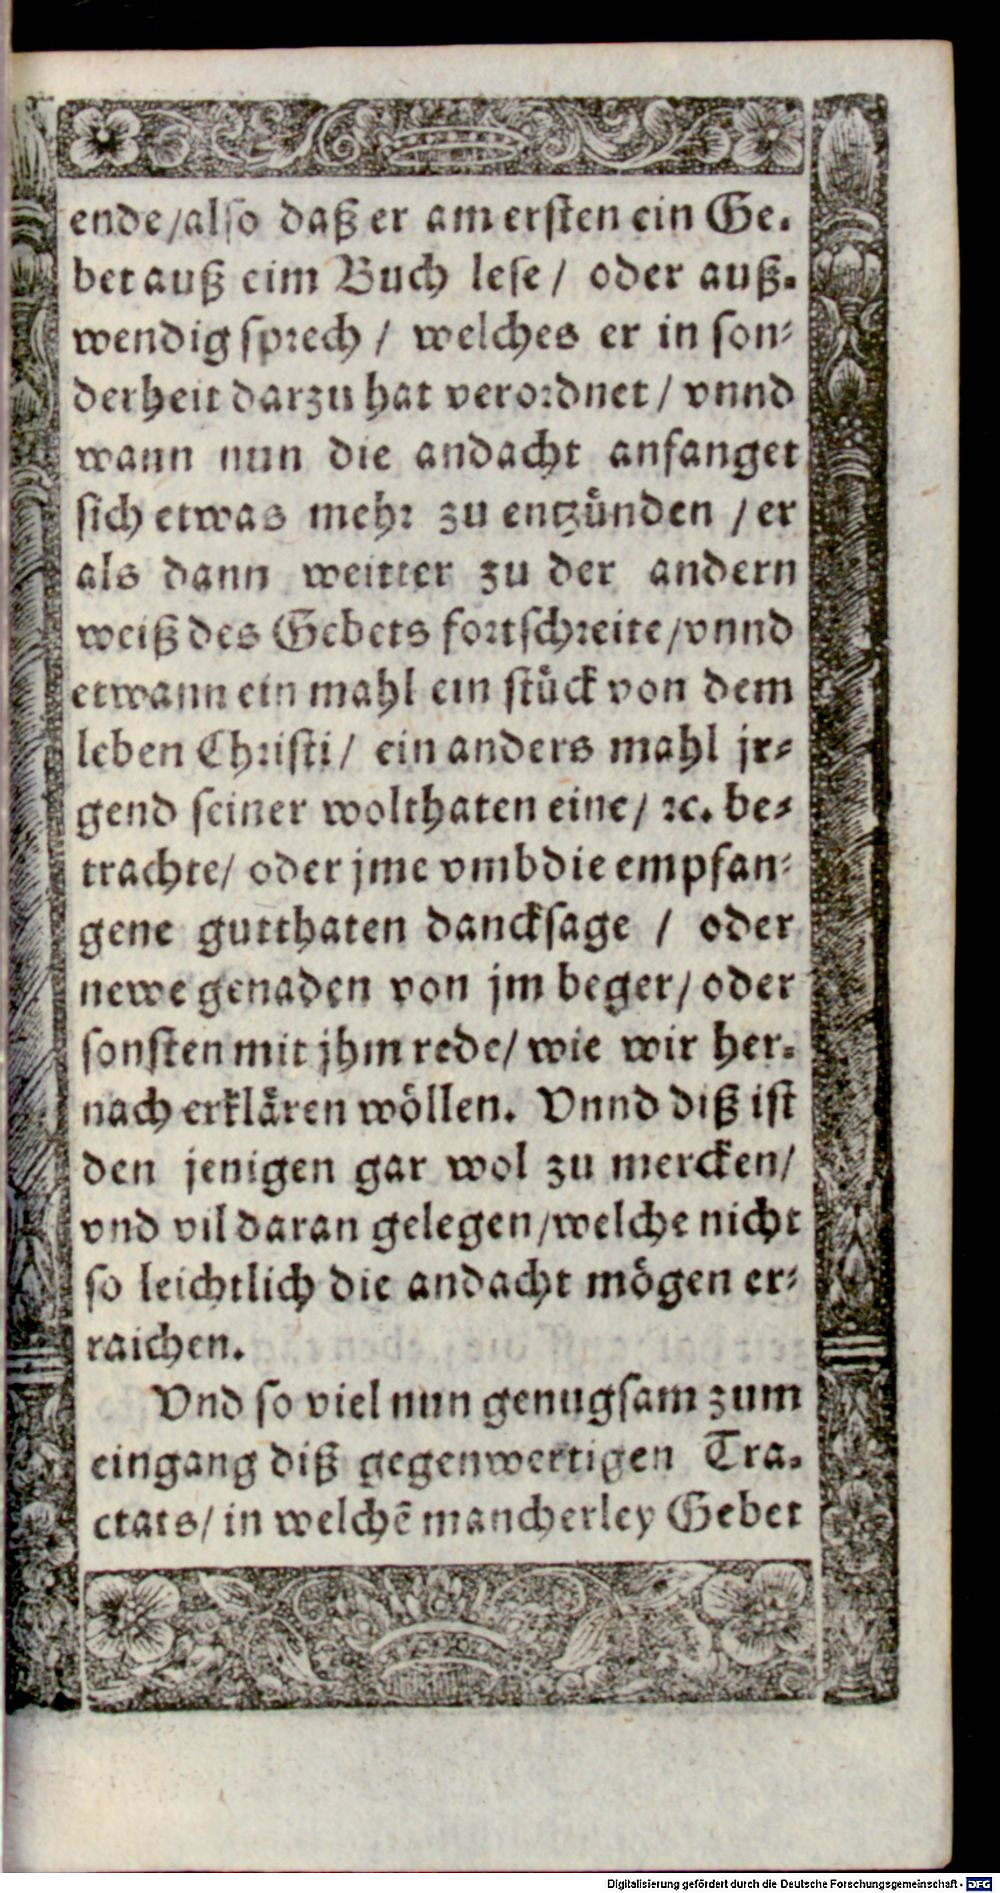 ende/also daß er am ersten ein Ge-
bet auß eim Buch lese / oder auß-
wendig sprech / welches er in son-
derheit darzu hat verordnet / vnnd
wann nun die andacht anfanget
sich etwas mehr zu entzünden / er
als dann weitter zu der andern
weiß des Gebets fortschreite/vnnd
etwann ein mahl ein stück von dem
leben Christi/ ein anders mahl jr-
gend seiner wolthaten eine/ ꝛc. be-
trachte/ oder jme vmb die empfan-
gene gutthaten dancksage / oder
newe genaden von jm beger/ oder
sonsten mit jhm rede/ wie wir her-
nach erklären wöllen. Vnnd diß ist
den jenigen gar wol zu mercken/
vnd vil daran gelegen/welche nicht
so leichtlich die andacht mögen er-
raichen.
Vnd so viel nun genugsam zum
eingang diß gegenwertigen Tra-
ctats/ in welchē mancherley Gebet
Digitalisierung gefördert durch die Deutsche Forschungsgemeinschaft - DFG